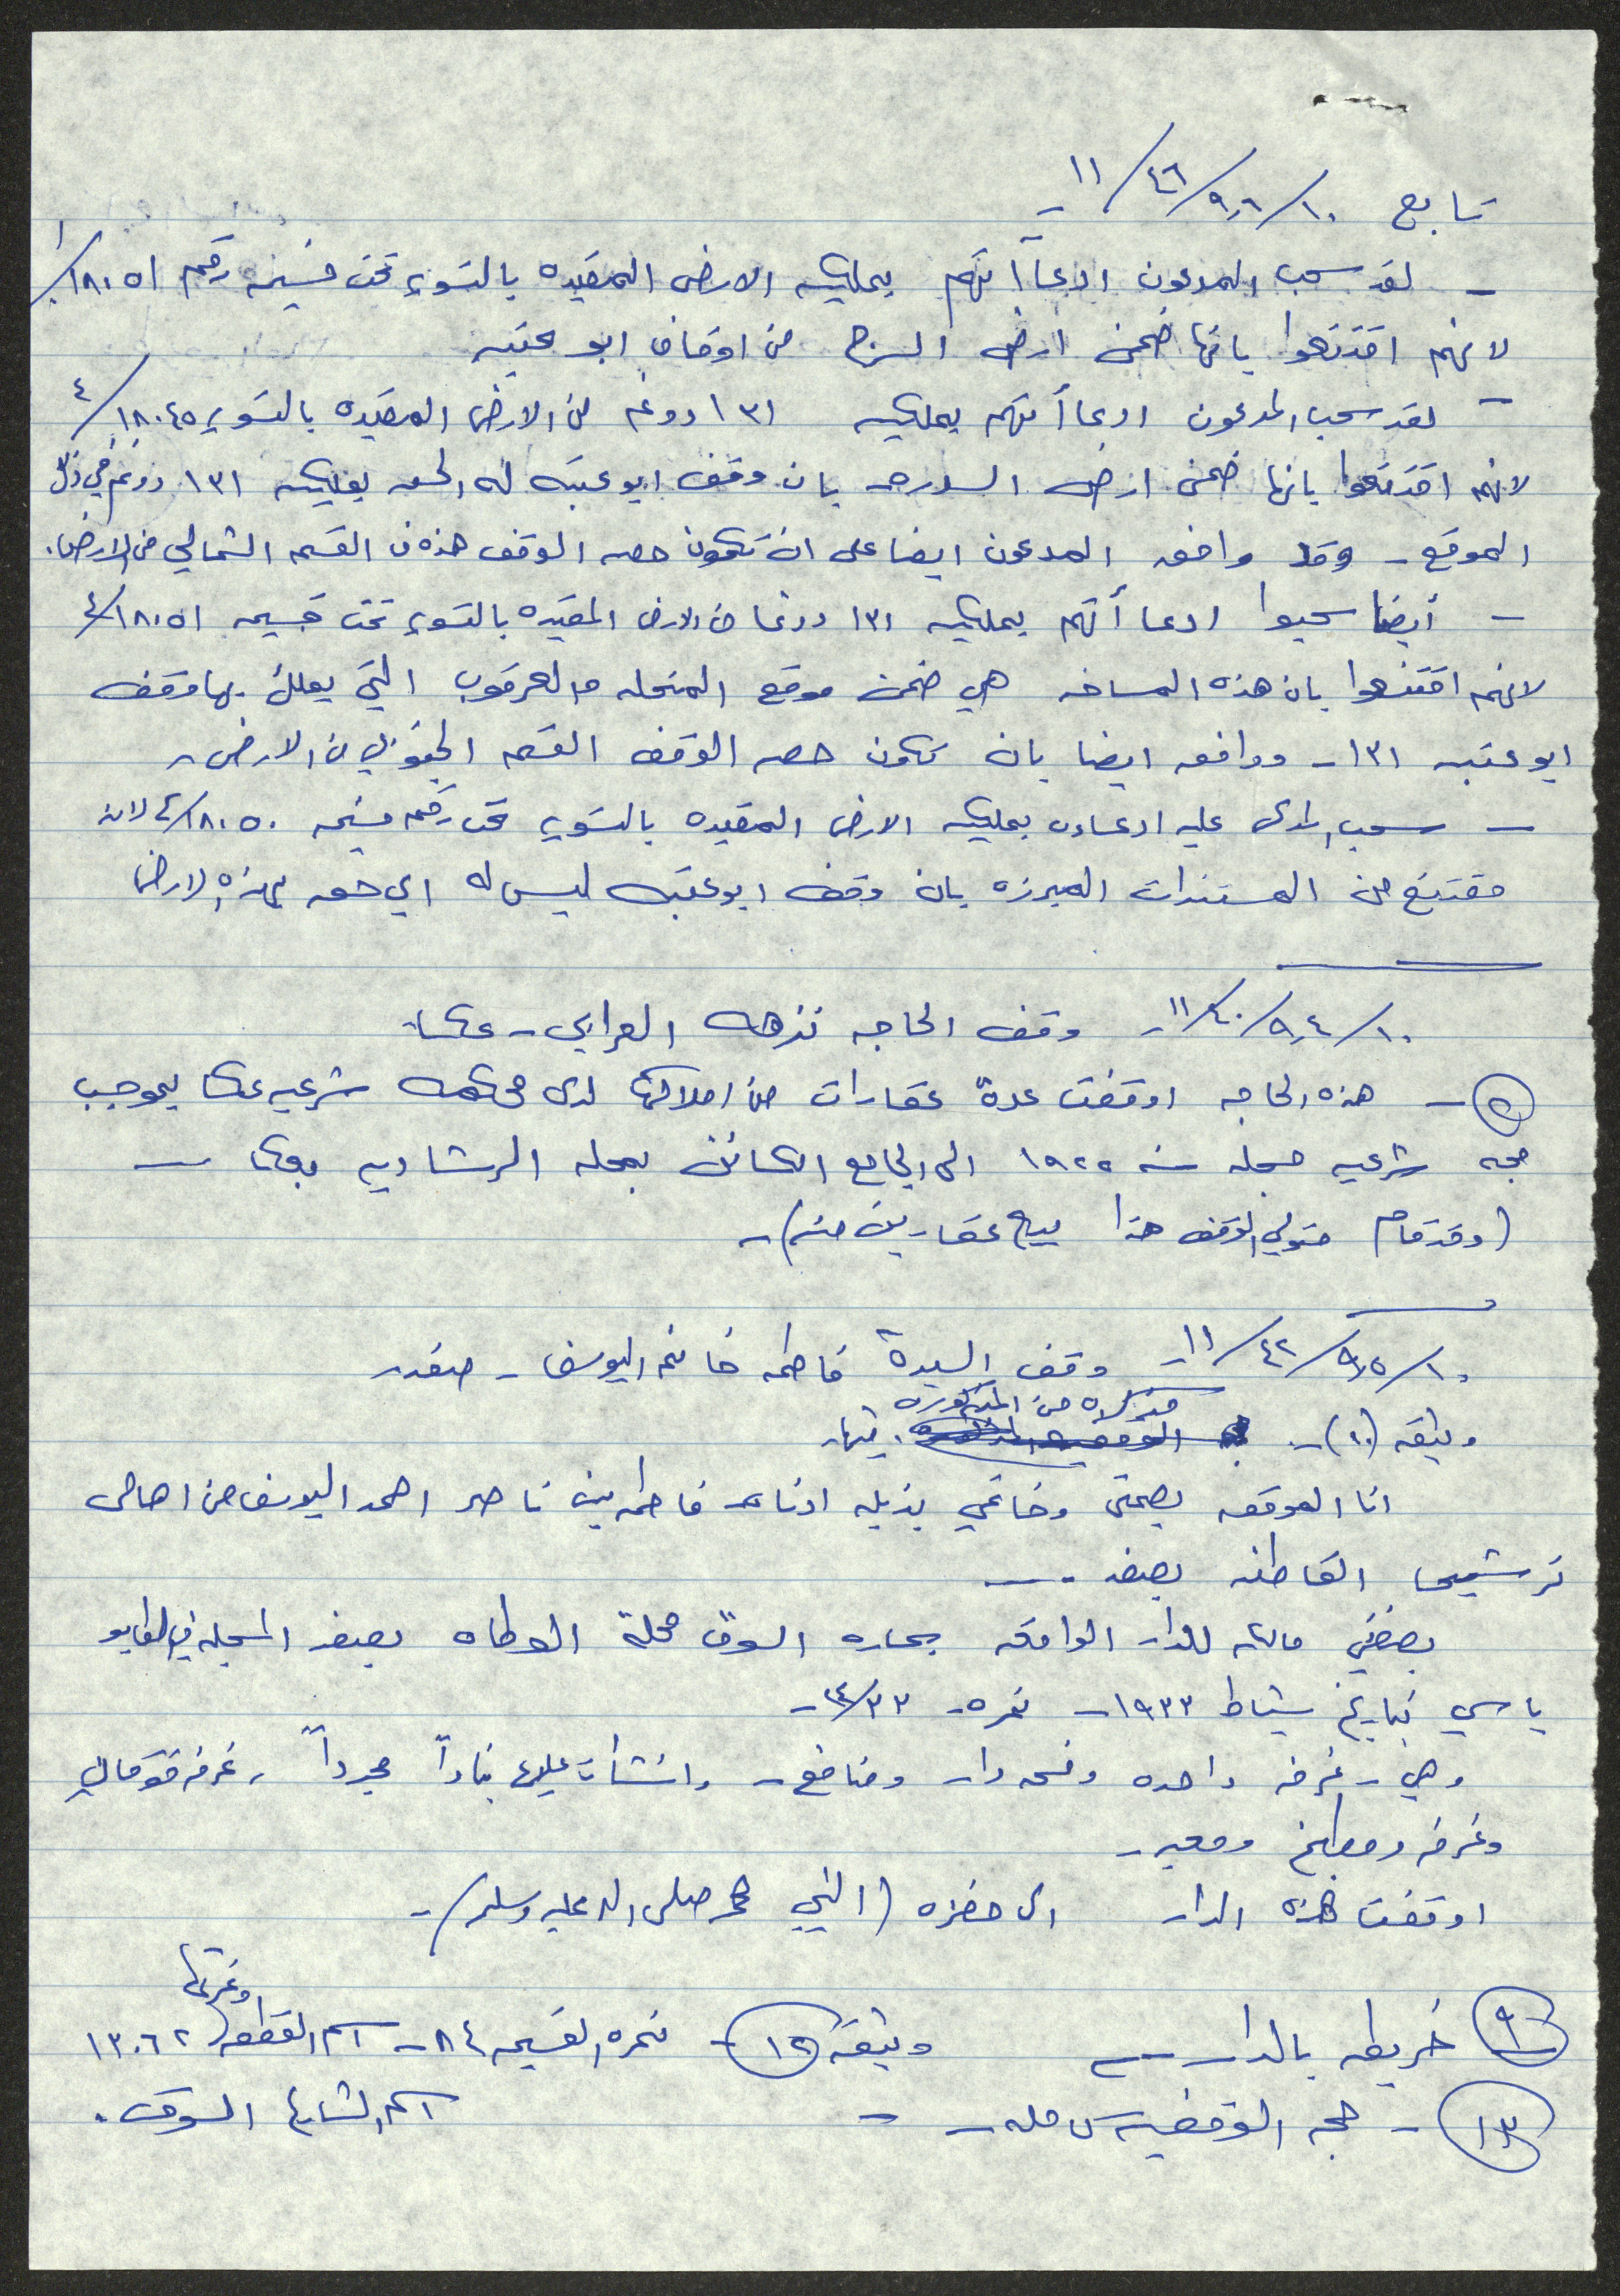 تابع ١٠/٩،٦/٤٦/١١-
- لقد سحب المدعون ادعاآتهم بملكيه الارض المقيده بالتسويه تحت قسيمه رقم ١٨٠٥١/١
لانهم اقتنعوا بانها ضمن ارض السرج من اوقاف ابو عتبه
- لقد سحب المدعون ادعاأتهم بملكيه ١٣١ دونم من الارض المقيده بالتسويه ١٨٠٤٥/٤
لانهم اقتنعوا بانها ضمن ارض السدرة بان وقف ابو عتبه له الحق بملكيه ١٣١ دونم في ذلك
الموقع - وقد وافق المدعون ايضا على ان تكون حصه الوقف هذه من القسم الشمالي من الارض.
- أيضا سحبوا ادعاأتهم بملكيه ١٣١ دونما من الارض المقيده بالتسويه تحت قسيمه ١٨٠٥١/٤
لانهم اقتنعوا بان هذه المساحه هي ضمن موقع المنحله والعرقوب التي يملك بها وقف
ابو عتبه ١٣١ - ووافق ايضا بان تكون حصه الوقف القسم الجنوبي من الارض -
- سحب المدعى عليه ادعاءه بملكيه الارض المقيده بالتسويه تحت رقم قسيمه ١٨٠٥٠/٤ لانه
مقتنع من المستندات المبرزه بان وقف ابو عتبه ليس له اي حق بهذه الارض
١٠/٩،٤/٤٠/١١- وقف الحاجه نزهه العرابي - عكا
- هذه الحاجه اوقفت عدة عقارات من املاكها لدى محكمه شرعيه عكا بموجب
حجه شرعيه مسجله سنه ١٩٢٥ الى الجامع الكائن بمحله الرشاديه بعكا -
(وقد قام متولي الوقف هذا ببيع عقارين منه) -
١٠/٩،٥/٤٢/١١- وقف السيدة فاطمه خانم اليوسف - صفد
مذكره من المذكوره
وثيقه (١٠) - فيها
انا الموقعه بصمتي وخاتمي بذيله ادناه فاطمه بنت ناصر احمد اليوسف من اهالي
ترشيحا القاطنه بصفد -
بصفتي مالكه للدار الواقعه بحاره السوق محلة الوطاه بصفد المسجله في الطابو
ياسي بتاريخ شباط ١٩٣٣ - نمره ٢٤/٣٣ -
وهي - غرفه واحده وفسحه دار ومنافع - وانشأت عليها بناءاً مجدداً ، غرفه فوقاني
وغرفه ومطبخ وممر -
اوقفت هذه الدار الى حضره (النبي محمد صلى الله عليه وسلم) -
(٩) خريطه بالدار - وثيقة (١٢) - نمره القسيمه ٨٤ - اسم القطعه ونمرتها ١٣٠٦٢
(١٣) - حجه الوقفيه كامله - اسم الشارع السوق .